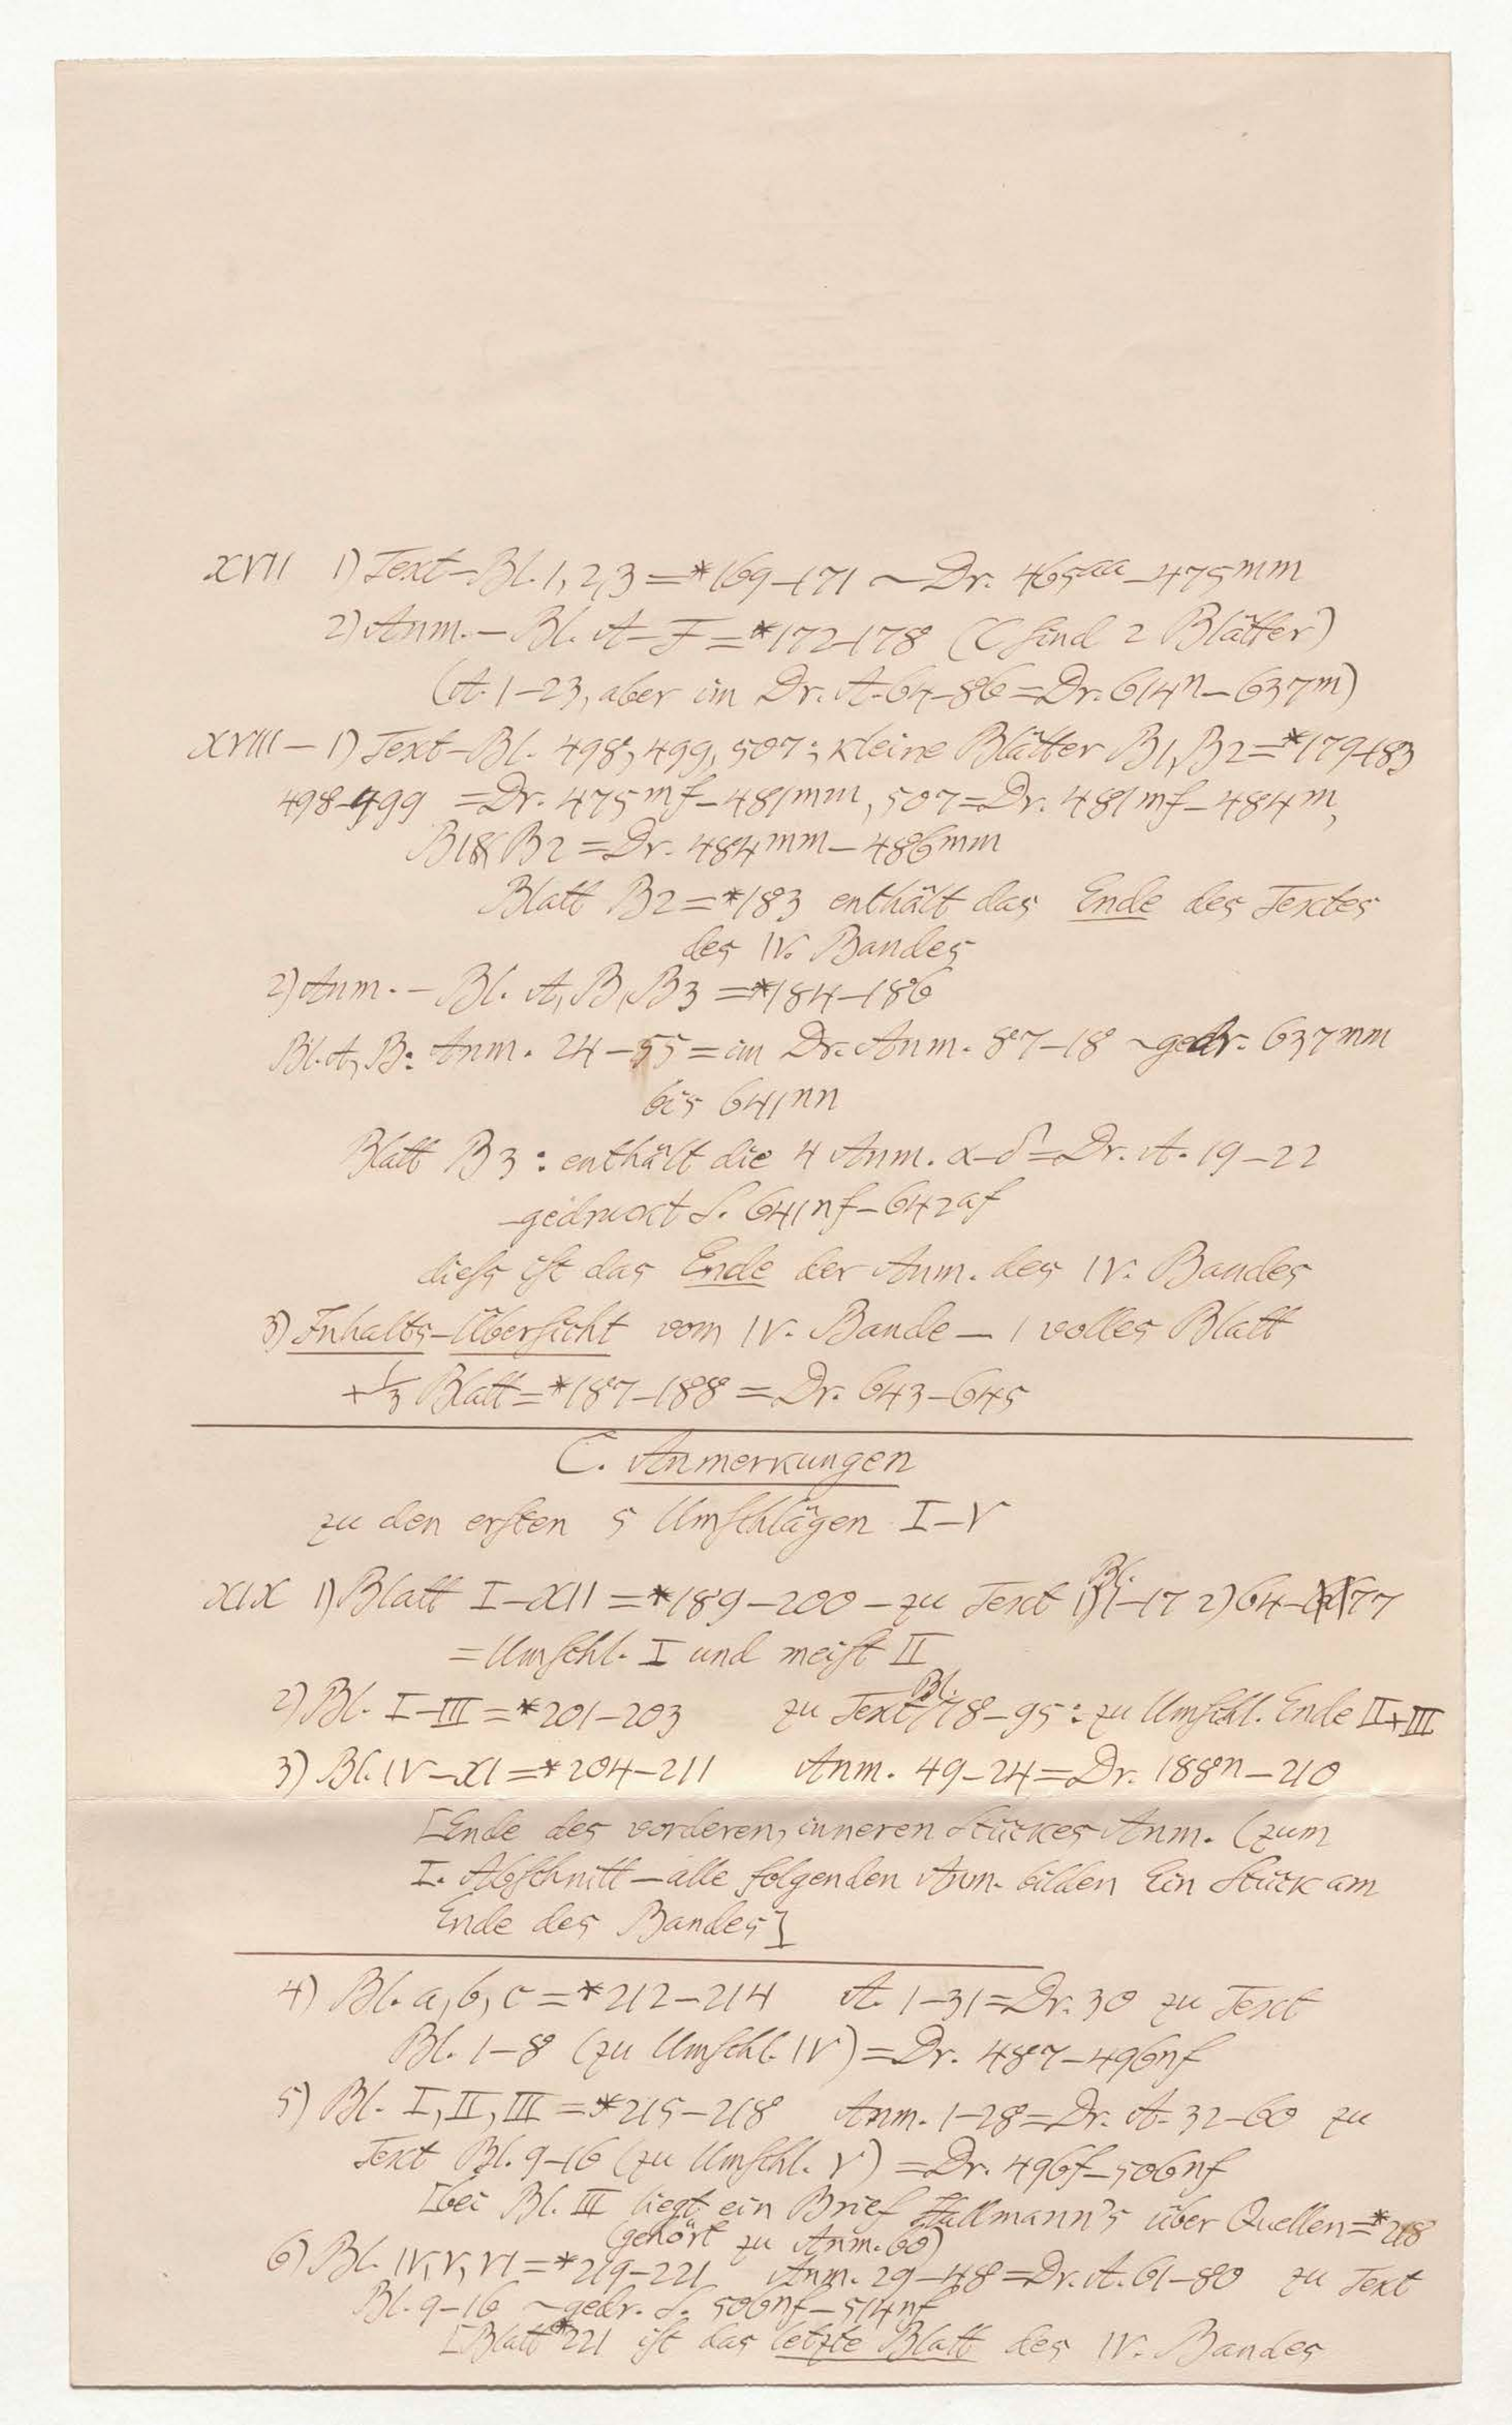 XVII 1) Text-Bl. 1, 2, 3 = *169-171 ~ Dr. 465aa - 475mm
2) Anm. - Bl. A-F = *172-178 (C sind 2 Blätter)
(A. 1-23, aber im Dr. A. 64-86 = Dr. 614n - 637m)
XVIII - 1) Text-Bl. 498, 499, 507; kleine Blätter B1, B2 = *179-183
498-499 = Dr. 475mf - 481mm, 507 = Dr. 481mf - 484m,
B1 & B2 = Dr. 484mm - 486mm
Blatt B2 = *183 enthält das Ende des Textes
des IV. Bandes
2) Anm. - Bl. A, B, B3 = *184-186
Bl. A, B: Anm. 24-55 = im Dr. Anm. 87-18 ~ gedr. 637mm
bis 641nn
Blatt B3: enthält die 4 Anm. α-δ = Dr. A. 19-22
-gedruckt S. 641nf - 642af
diess ist das Ende der Anm. des IV. Bandes
3) Inhalts-Übersicht vom IV. Bande - 1 volles Blatt
+ 1/3 Blatt = *187-188 = Dr. 643-645
C. Anmerkungen
zu den ersten 5 Umschlägen I-V
XIX 1) Blatt I-XII = *189-200 - zu Text 1) Bl. 1-17 2) 64-77
= Umschl. I und meist II
2) Bl. I-III = *201-203 zu Text Bl. 78-95: zu Umschl. Ende II+III
3) Bl. IV-XI = *204-211 Anm. 49-24 = Dr. 188n - 210
[Ende des vorderen, inneren Stückes Anm. (zum
I. Abschnitt - alle folgenden Anm. bilden Ein Stück am
Ende des Bandes]
4) Bl. a, b, c = *212-214 A. 1-31 = Dr. 30 zu Text
Bl. 1-8 (zu Umschl. IV) = Dr. 487-496nf
5) Bl. I, II, III = *215-218 Anm. 1-28 = Dr. A. 32-60 zu
Text Bl. 9-16 (zu Umschl. V) = Dr. 496f - 506nf
[bei Bl. III liegt ein Brief Hallmann's über Quellen = *218
(gehört zu Anm. 60)
6) Bl. IV, V, VI = *219-221 Anm. 29-48 = Dr. A. 61-80 zu Text
Bl. 9-16 ~ gedr. S. 506nf - 514nf
[Blatt *221 ist das letzte Blatt des IV. Bandes